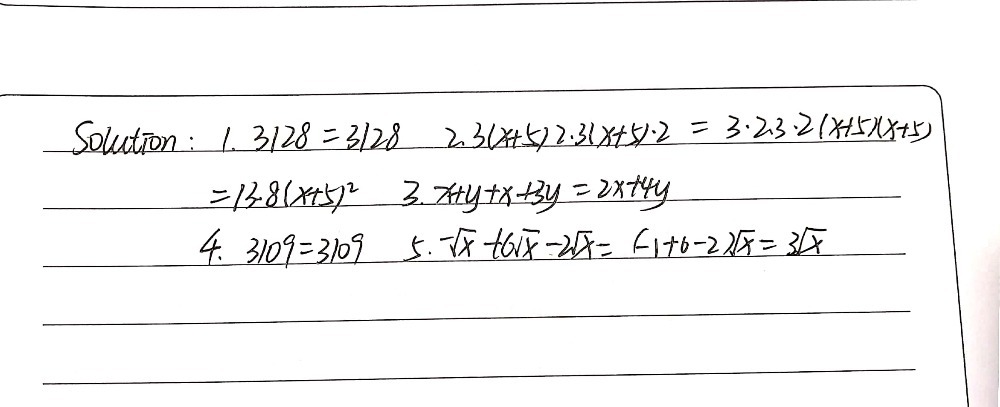 Solution: 1. 3128 = 3128 2. 3(x+5) 2.3(x+5)·2 = 3·2.3·2(x+5)(x+5)
=13.8(x+5)² 3. x+y+x+3y = 2x+4y
4. 3109=3109 5. -√x +6√x -2√x = (-1+6-2)√x = 3√x